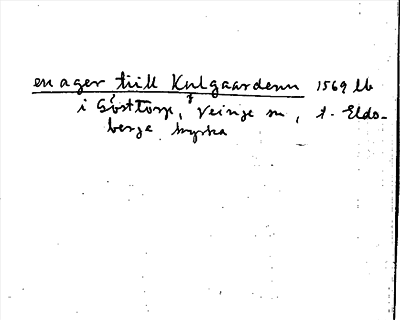 en ager tiill Kulgaardenn 1569 lb
i Gösttorp, Veinge sn, t. Elds-
berga kyrka